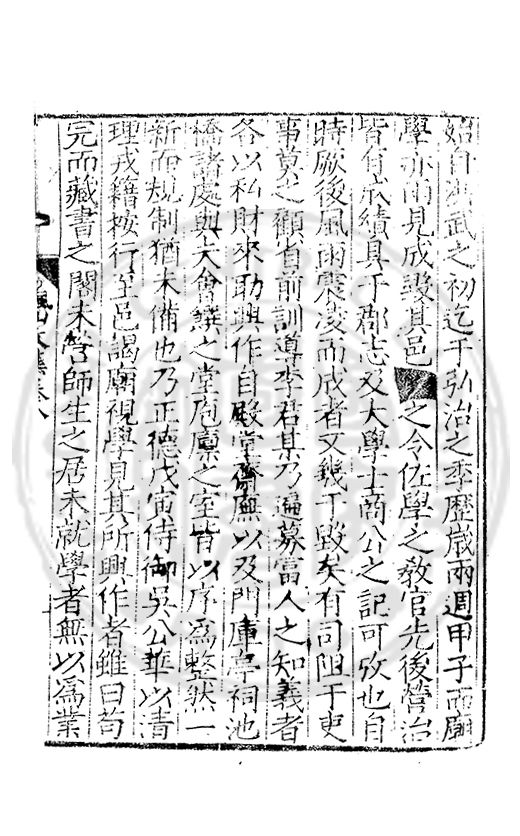 始自洪武之初迄于弘治之季歷歲兩週甲子而廟
學亦兩見成毀其邑之令佐學之教官先後營治
皆有成績具于郡志及大學士商公之記可攷也自
時厥後風雨震凌而成者又幾于毀矣有司阻于吏
事莫之顧省前訓導李君某乃遍募富人之知義者
各以私財來助興作自殿堂齋廡以及門庫亭祠池
橋諸處與夫會饌之堂庖廪之室皆以序爲整然一
新而規制猶未備也乃正德戊寅侍御吳公華以清
理戎籍按行至邑謁廟視學見其所興作者雖曰苟
完而藏書之閣未營師生之居未就學者無以爲業
文集卷八